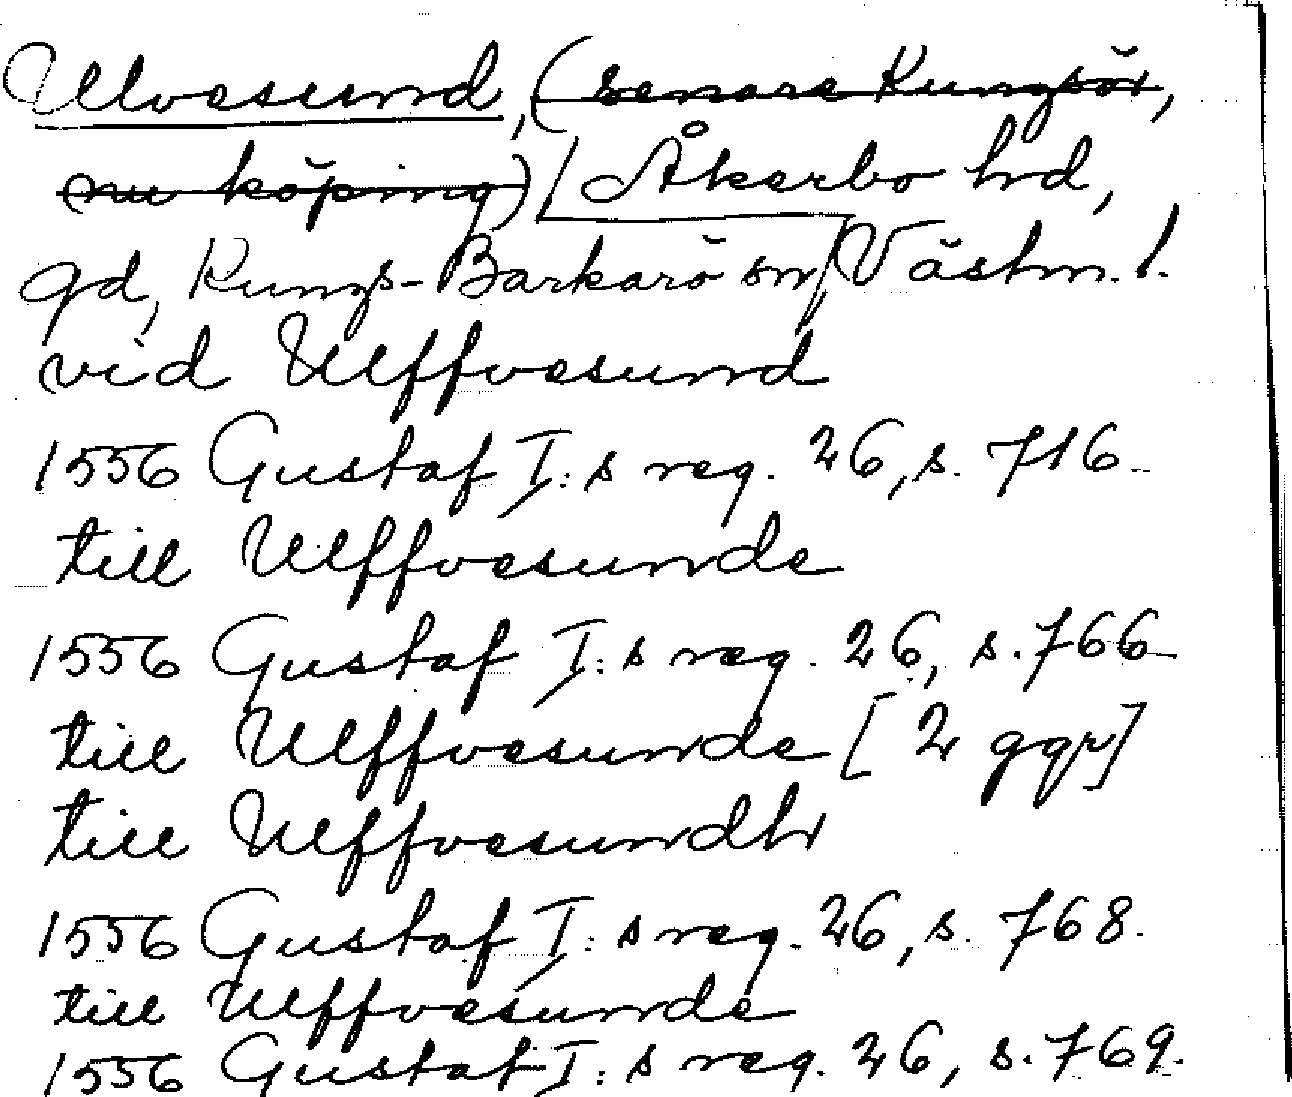 Ulvesund, (senare Kungsör,
nu köping) [Åkerbo hd,
gd, Kungs-Barkarö sn] Västm. l.
vid Ulffvesund
1556 Gustaf I:s reg. 26, s. 716.
till Ulffvesunde
1556 Gustaf I:s reg. 26, s. 766
till Ulffvesunde [2 ggr]
till Ulffvesundh
1556 Gustaf I:s reg. 26, s. 768.
till Ulffvesunde
1556 Gustaf I:s reg. 26, s. 769.